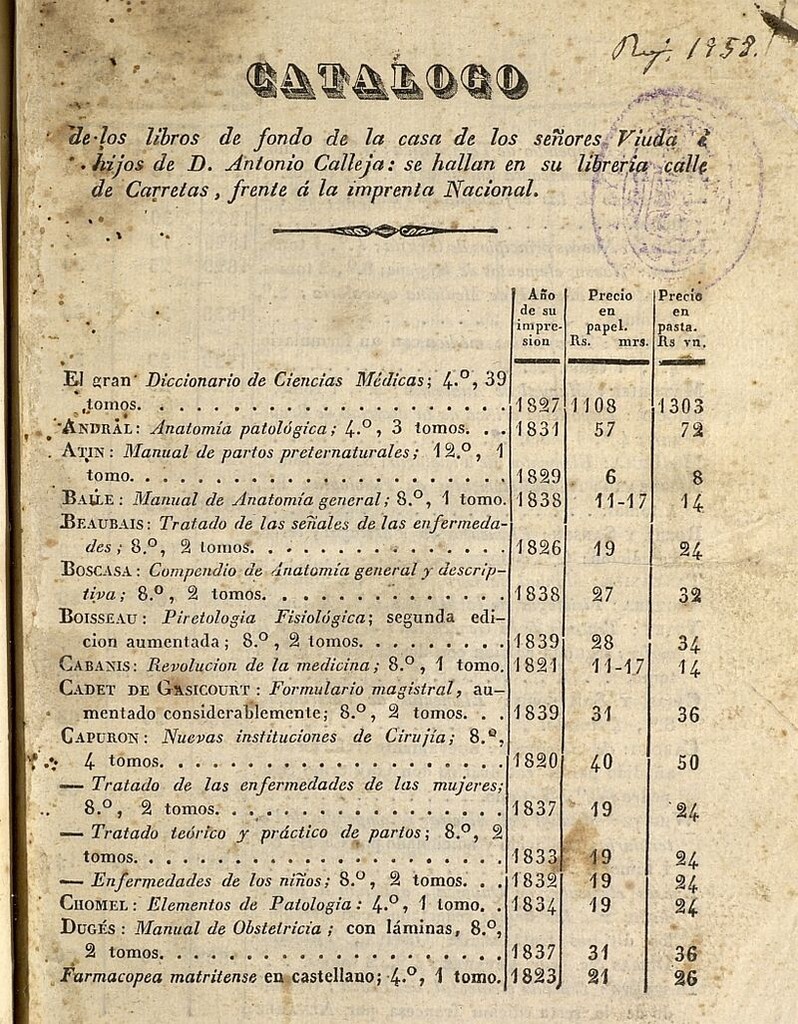 CATALOGO
de los libros de fondo de la casa de los señores Viuda é
hijos de D. Antonio Calleja: se hallan en su librería calle
de Carretas, frente á la imprenta Nacional.
Año de su impre-sion
Precio en papel. Rs. mrs.
Precio en pasta. Rs vn.
El gran Diccionario de Ciencias Médicas; 4.º, 39
tomos. . . . . . . . . . . . . . . . . . . . 1827 1108 1303
ANDRAL: Anatomía patológica; 4.º, 3 tomos. . . 1831 57 72
ATIN: Manual de partos preternaturales; 12.º, 1
tomo. . . . . . . . . . . . . . . . . . . . 1829 6 8
BAILE: Manual de Anatomía general; 8.º, 1 tomo. 1838 11-17 14
BEAUBAIS: Tratado de las señales de las enfermeda-
des; 8.º, 2 tomos. . . . . . . . . . . . . . 1826 19 24
BOSCASA: Compendio de Anatomía general y descrip-
tiva; 8.º, 2 tomos. . . . . . . . . . . . . 1838 27 32
BOISSEAU: Piretologia Fisiológica; segunda edi-
cion aumentada; 8.º, 2 tomos. . . . . . . . 1839 28 34
CABANIS: Revolucion de la medicina; 8.º, 1 tomo. 1821 11-17 14
CADET DE GASICOURT: Formulario magistral, au-
mentado considerablemente; 8.º, 2 tomos. . . 1839 31 36
CAPURON: Nuevas instituciones de Cirujía; 8.º,
4 tomos. . . . . . . . . . . . . . . . . . 1820 40 50
— Tratado de las enfermedades de las mujeres;
8.º, 2 tomos. . . . . . . . . . . . . . . . 1837 19 24
— Tratado teórico y práctico de partos; 8.º, 2
tomos. . . . . . . . . . . . . . . . . . . . 1833 19 24
— Enfermedades de los niños; 8.º, 2 tomos. . . 1832 19 24
CHOMEL: Elementos de Patologia: 4.º, 1 tomo. . 1834 19 24
DUGÉS: Manual de Obstetricia; con láminas, 8.º,
2 tomos. . . . . . . . . . . . . . . . . . 1837 31 36
Farmacopea matritense en castellano; 4.º, 1 tomo. 1823 21 26